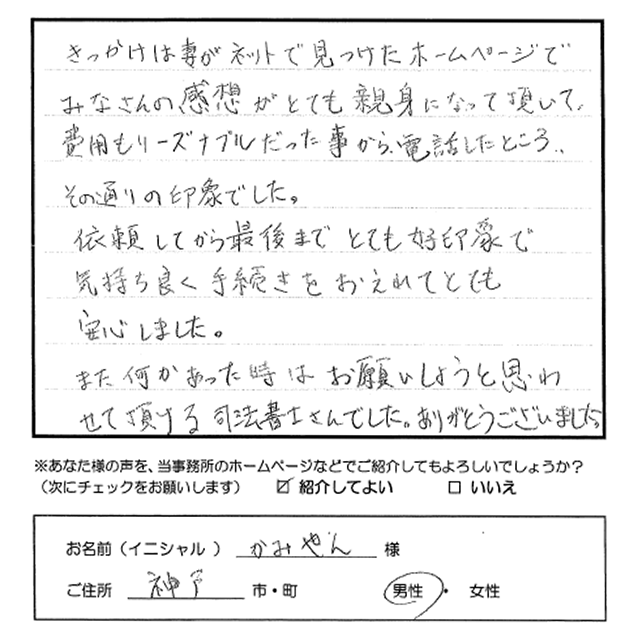 きっかけは妻がネットで見つけたホームページで
みなさんの感想がとても親身になって頂いて、
費用もリーズナブルだった事から、電話したところ、
その通りの印象でした。
依頼してから最後までとても好印象で
気持ち良く手続きをおえれてとても
安心しました。
また何かあった時はお願いしようと思わ
せて頂ける司法書士さんでした。ありがとうございました。
※あなた様の声を、当事務所のホームページなどでご紹介してもよろしいでしょうか?
(次にチェックをお願いします) ☑ 紹介してよい □ いいえ
お名前(イニシャル) かみやん 様
ご住所 神戸 市・町 男性・女性